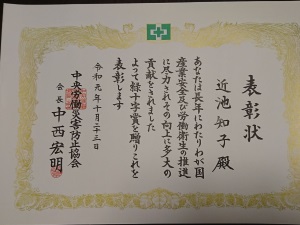 表彰状
近池知子 殿
あなたは長年にわたりわが国
産業安全及び労働衛生の推進
に尽力されその向上に多大の
貢献をされました
よって緑十字賞を贈りこれを
表彰します
令和元年十月二十三日
中央労働災害防止協会
会長 中西宏明